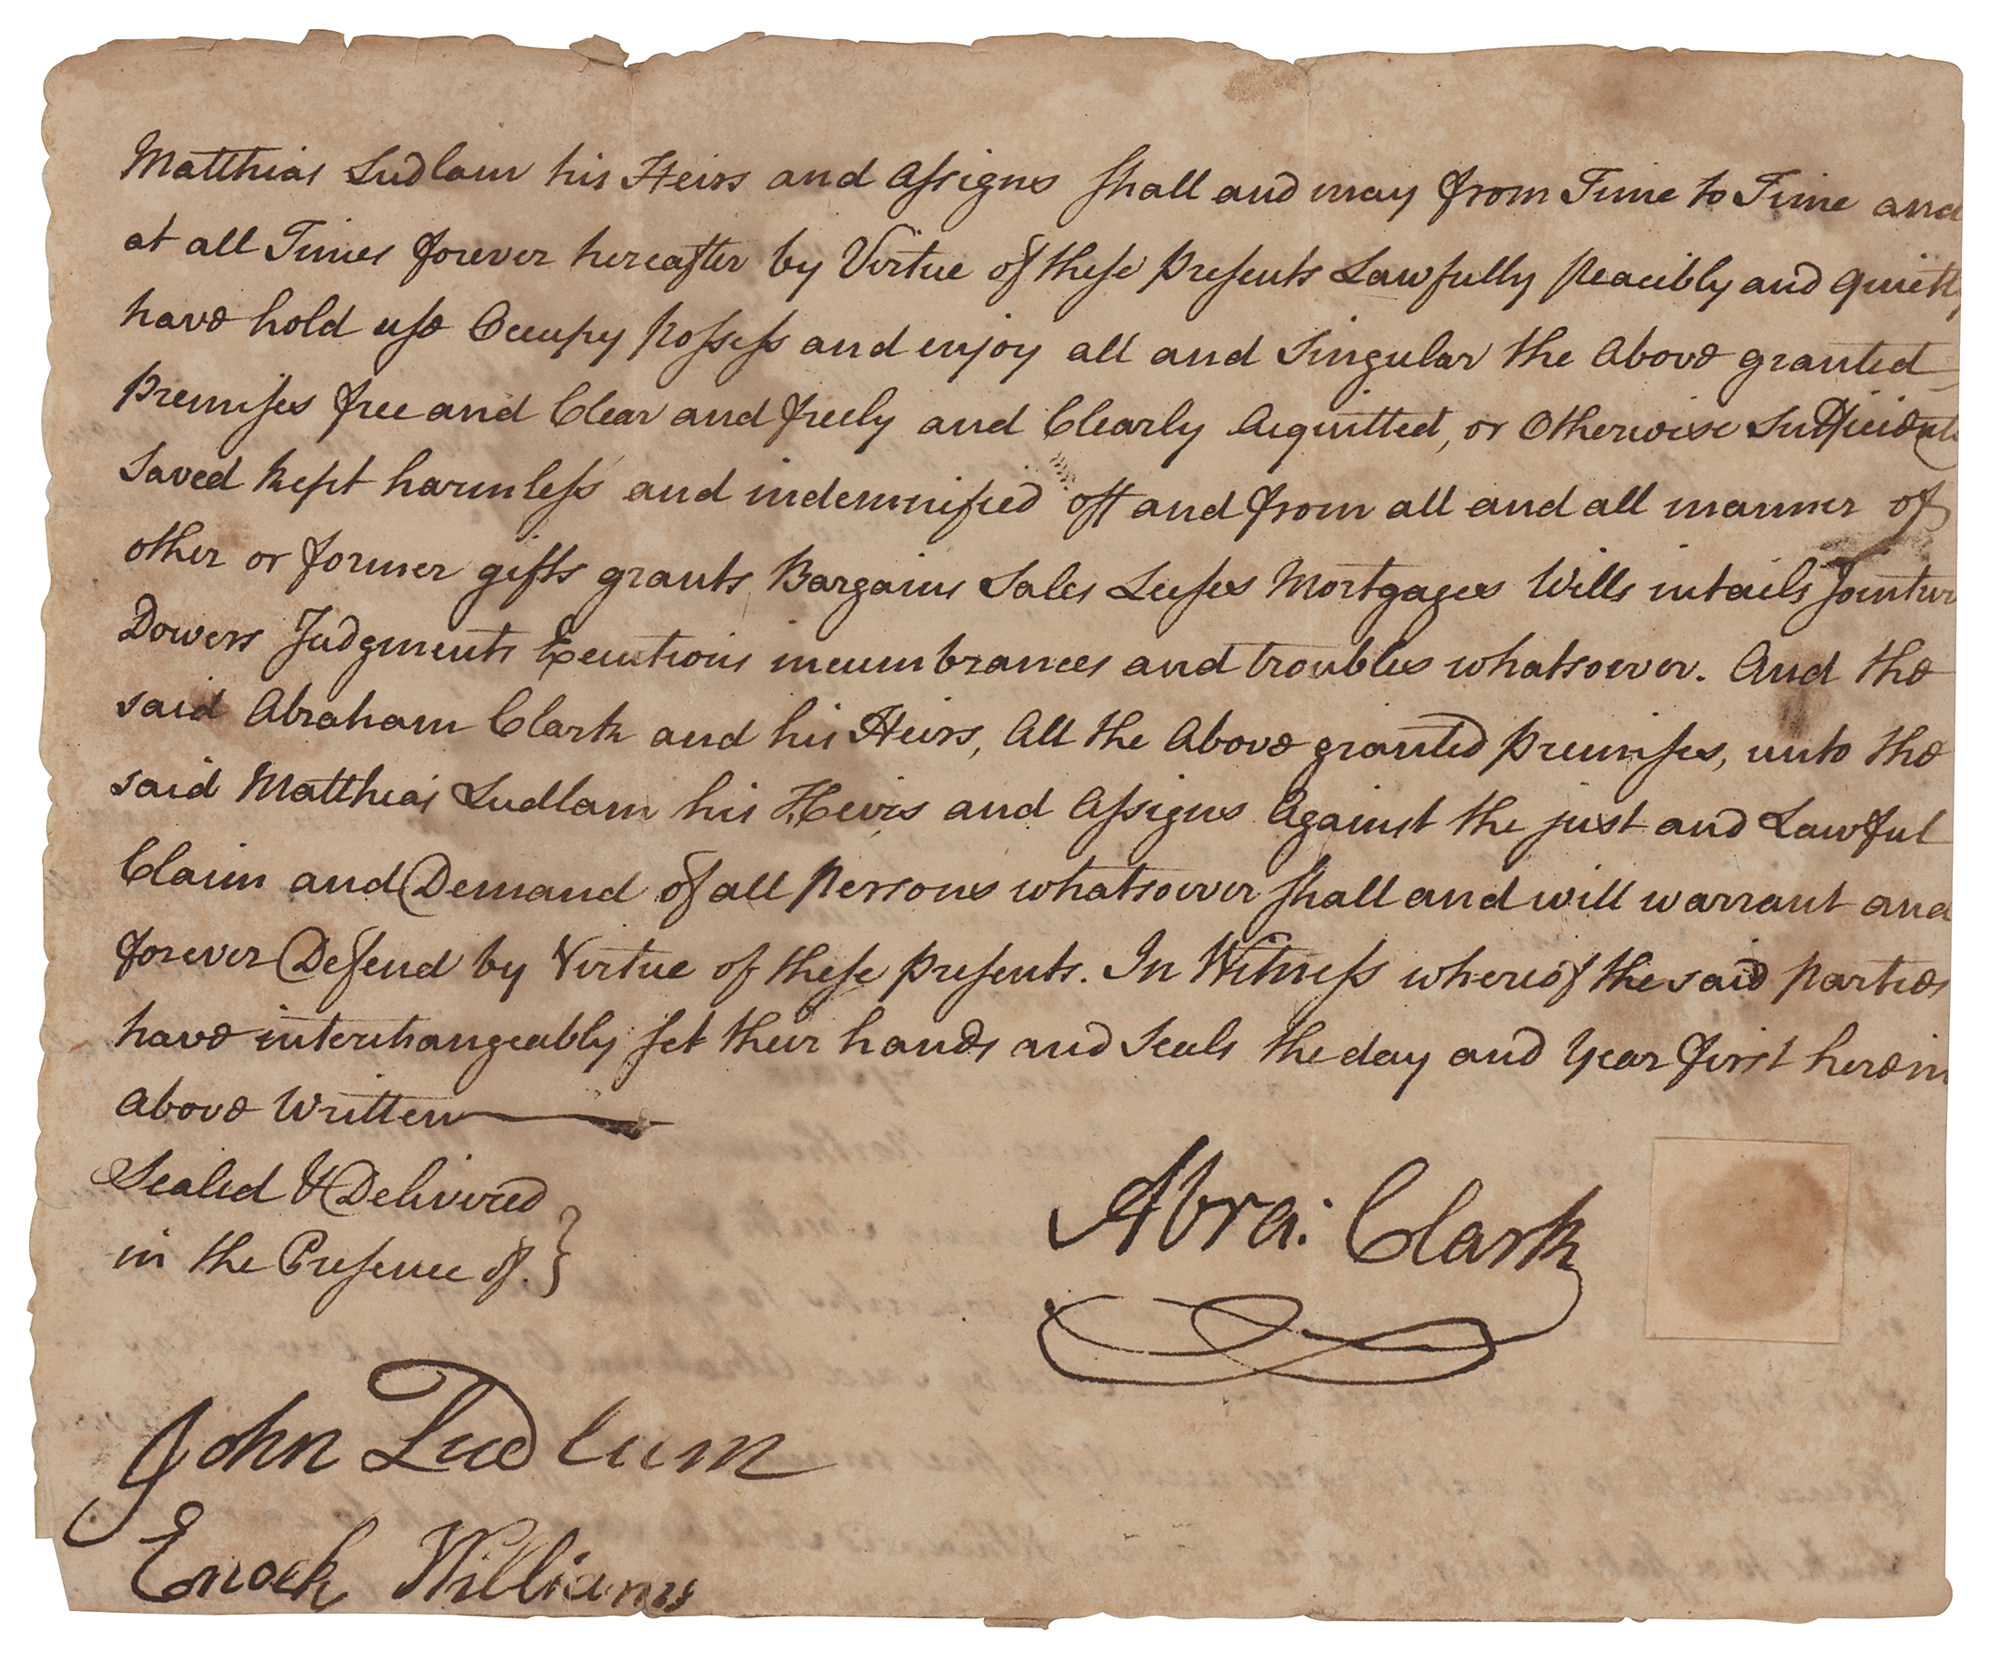 Matthias Ludlam his Heirs and Assigns shall and may from Time to Time and
at all Times forever hereafter by Virtue of these presents Lawfully peacibly and quietly
have hold use Occupy possess and enjoy all and Singular the Above granted
premises free and Clear and freely and Clearly Acquitted, or Otherwise
Saved kept harmless and indemnified off and from all and all manner of
other or former gifts grants Bargains Sales Leeses Mortgages Wills intails
Dowers Judgments Executions incumbrances and troubles whatsoever. And the
said Abraham Clark and his Heirs, All the Above granted premises, unto the
said Matthias Ludlam his Heirs and Assigns Against the just and Lawful
Claim and Demand of all persons whatsoever shall and will warrant and
forever Defend by Virtue of these presents. In Witness whereof the said parties
have interchangeably set their hands and seals the day and Year first herein
Above Written
Sealed & Delivered
in the Presence of.
Abra: Clark
John Ludlum
Enoch Williams